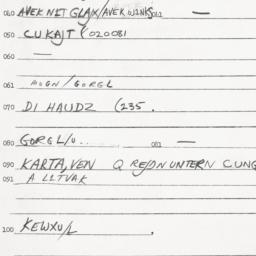 040 AVEK NET GLAX/AVEK WINKS 012 —
050 CUKAJT (020081
060 —
061 AUGN/GORGL
070 DI HAUDZ (235.
080 GORGL/U.. 081 —
090 KARTA, VEN Q REJON UNTERN CUNG
091 A LLTVAK
100 KEWXU/L .